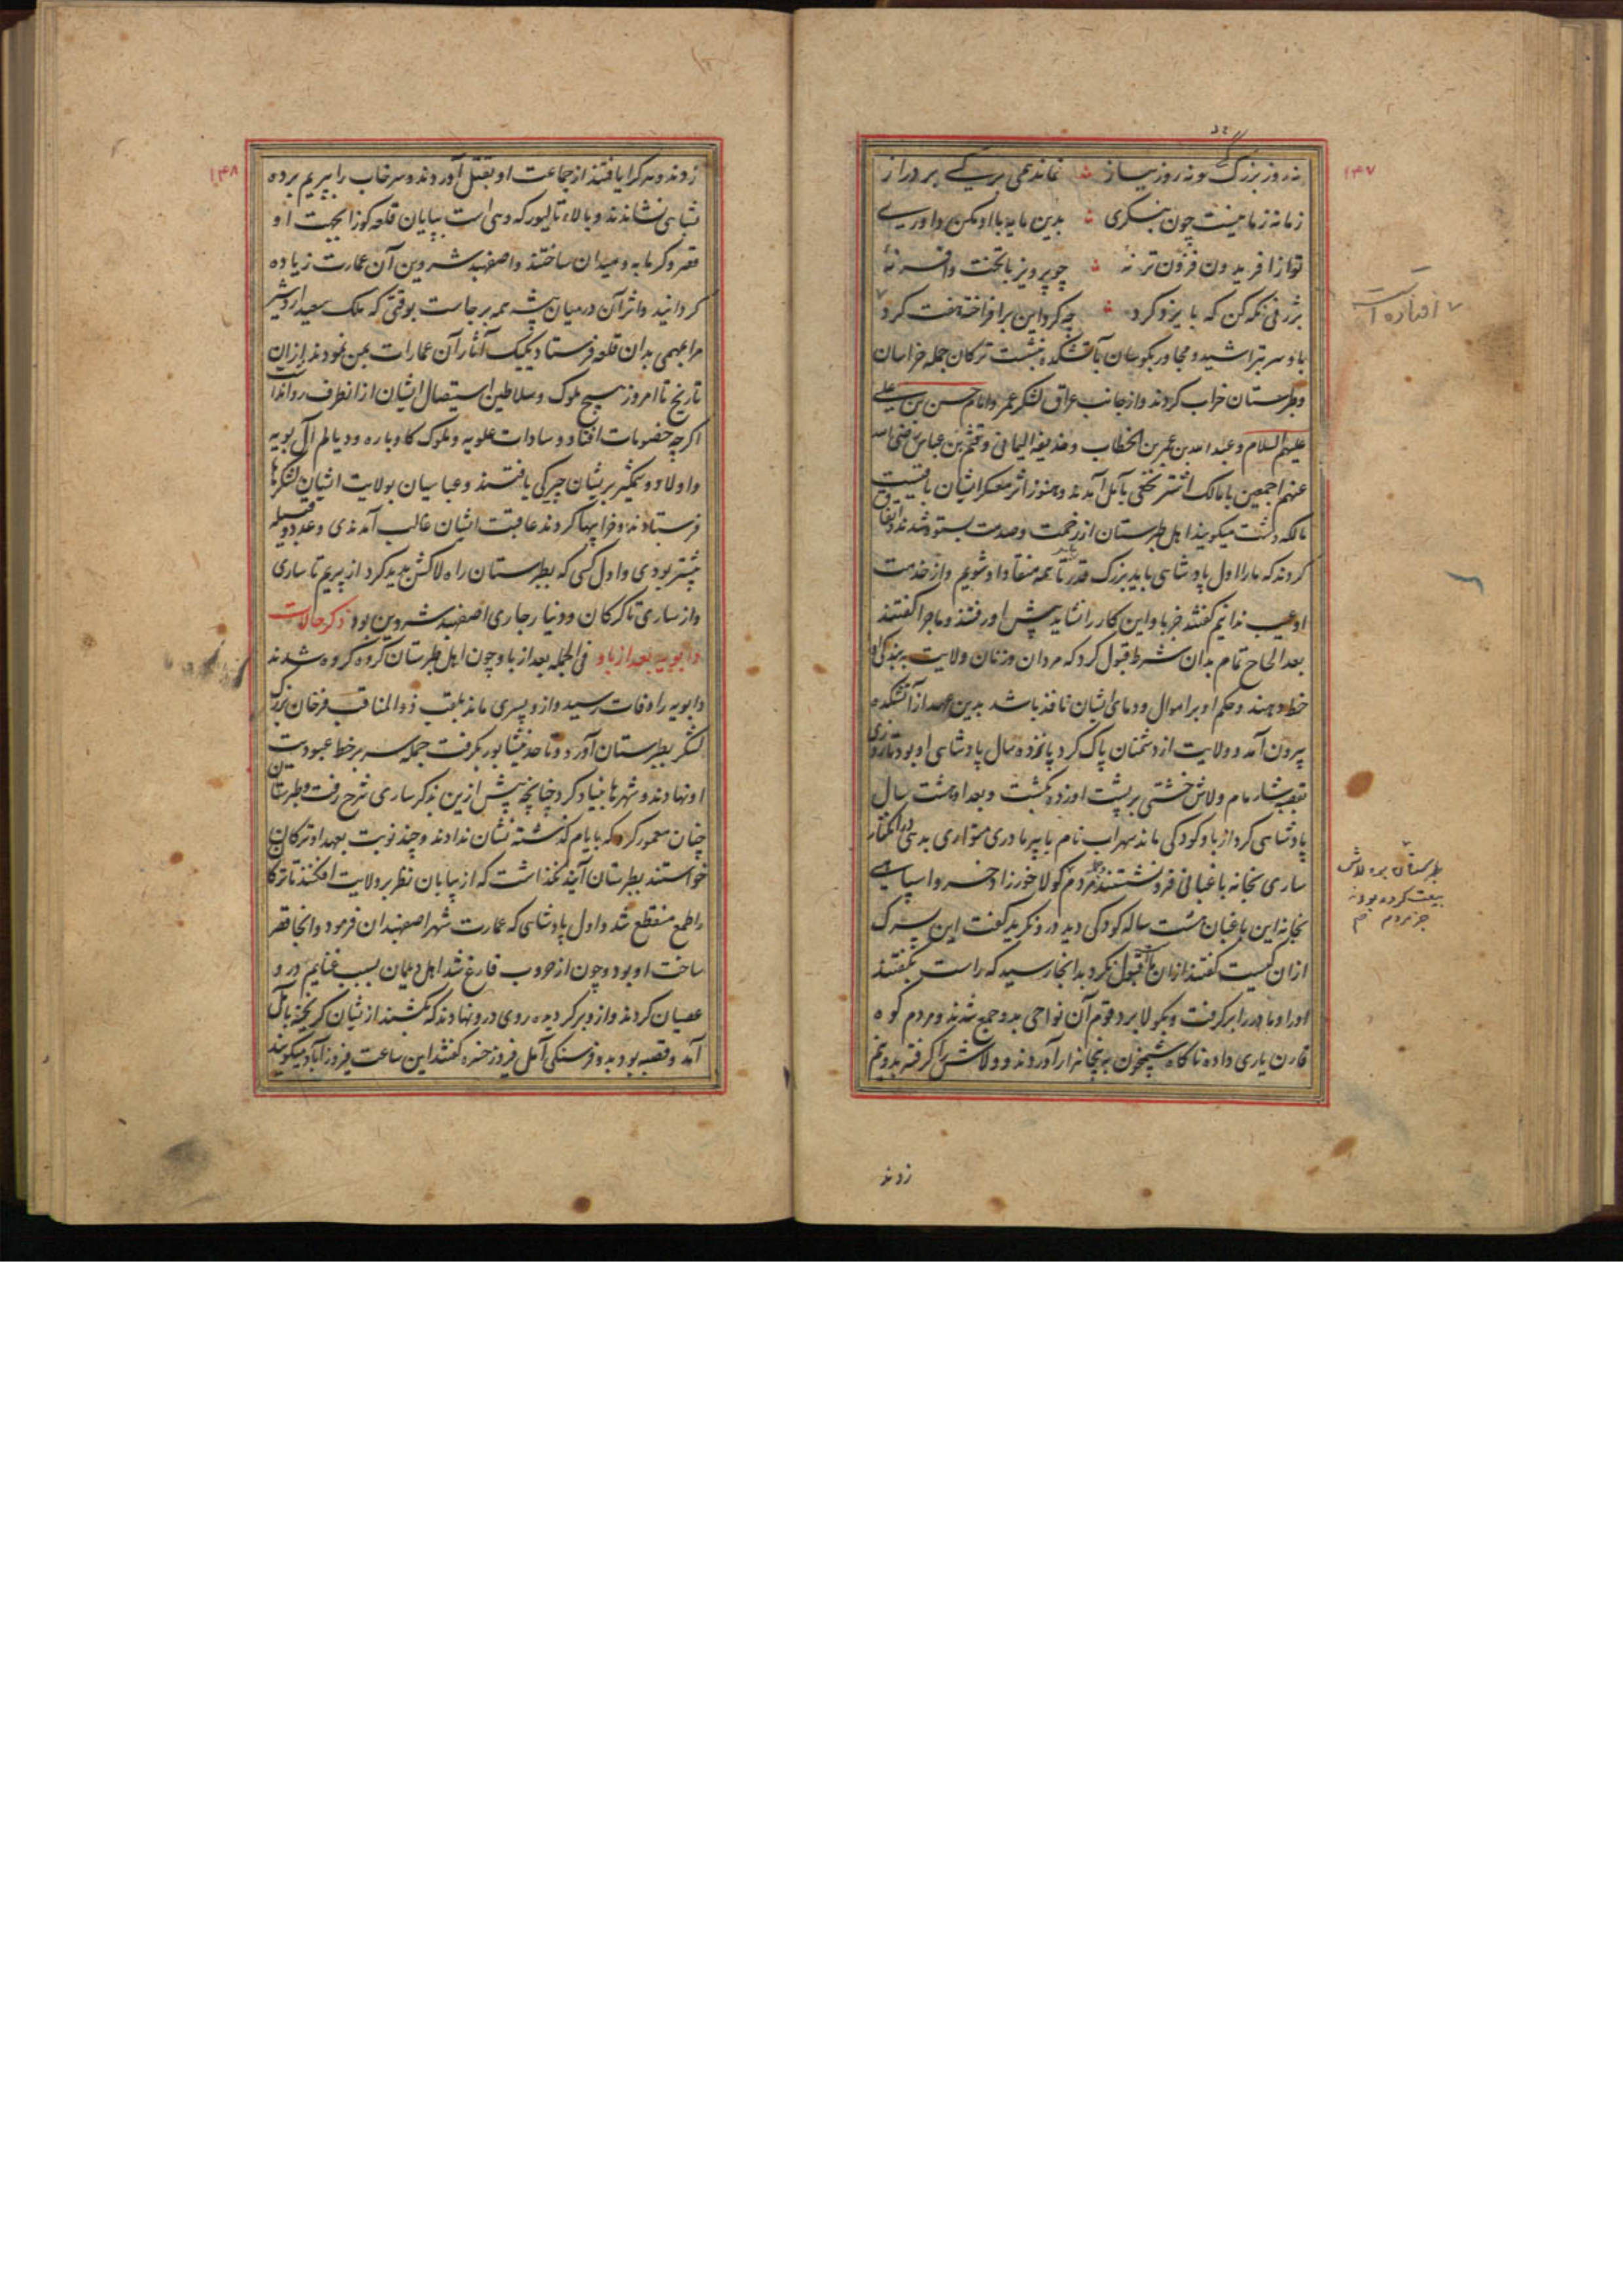 ۱۴۷
نه روز بزرگ و نه روز نیاز نماند همی بر کسی بر دراز
زمانه زمانیست چون بنگری بدین مایه با او مکن داوری
تو از افریدون فزون تر نهٔ چو پرویز با تخت و افسر نهٔ
بژرفی نگه کن که با یزدکرد چه کرد این برافراخته هفت کرد
باو سر بتراشید و مجاور بکوسان باتشکده بنشست ترکان جمله خراسان
و طبرستان خراب کردند و از جانب عراق لشکر عمر و امام حسن بن علی
علیهم السلام و عبد الله بن عمر بن الخطاب و حذیفه الیمانی و قثم بن عباس رضی الله
عنهم اجمعین با مالک اشتر نخعی بآمل آمدند و هنوز اثر معسکر ایشان باقیست
مالکه دشت میکویند اهل طبرستان از زحمت و صدمت بستوه شدند و اتفاق
کردند که ما را اول پادشاهی باید بزرک قدر تا همه منقاد او شویم و از خدمت
او عیب ندانیم کفتند جز باو این کار را نشاید پیش او رفتند و ماجرا کفتند
بعد الحاح تمام بدان شرط قبول کرد که مردان و زنان ولایت ببندکی او
خط دهند و حکم او بر اموال و دمای ایشان نافذ باشد بدین عهد از آتشکده
بیرون آمد و ولایت از دشمنان پاک کرد پانزده سال پادشاهی او بود تا روزی
بقصبه شارمام ولاش خشتی بر پشت او زد بکشت و بعد او هشت سال
پادشاهی کرد از باو کودکی ماند سهراب نام با پیر مادری متواری بدیه دز انکنار
ساری بخانه باغبانی فرو نشستند مردم کولا خورزاد خسرو اسپاهی
بخانه این باغبان هشت ساله کودکی دید درو نکرید کفت این پسرک
از ان کیست کفتند از ان ما قبول نکرد بدانجا رسید که راست بکفتند
او را و مادر را برکرفت و بکولا برد و قوم آن نواحی بدو جمع شدند و مردم کوه
قارن یاری داده ناکاه شبیخون به پنجاه هزار آوردند و ولاش را کرفته بدو نیم
زدند
افتاده است
طبرستان همه ولاش
بیعت کرده بودند
جز مردم
۱۴۸
زدند و هر کرا یافتند از جماعت او بقتل آوردند و سرخاب را بپریم برده
بشاهی نشاندند و بالاء تالیور که دهی است بپایان قلعه کوزا بجهت او
قصر و کرمابه و میدان ساختند و اصفهبد شروین آن عمارت زیاده
کردانید و اثر آن در میان بیشه همه برجاست بوقتی که ملک سعید اردشیر
مرا بمهمی بدان قلعه فرستاد یکیک آثار آن عمارات بمن نمودند از ان
تاریخ تا امروز هیچ ملوک و سلاطین استیصال ایشان از انطرف روا نداشت
اکرچه خصومات افتاد و سادات علویه و ملوک کاوباره و دیالم آل بویه
و اولاد وشمکیر بریشان چیرکی یافتند و عباسیان بولایت ایشان لشکرها
فرستادند و خرابیها کردند عاقبت ایشان غالب آمدندی و عدد و قبیله
بیشتر بودی و اول کسی که بطبرستان راه لاکش پدید کرد از پریم تا ساری
و از ساری تا کرکان و دینار جاری اصفهبد شروین بود ذکر حالات
دابویه بعد از باو فی الجمله بعد از باو چون اهل طبرستان کروه کروه شدند
دابویه را وفات رسید و ازو پسری ماند بلقب ذو المناقب فرخان بزرک
لشکر بطبرستان آورد و تا حد نیشابور بکرفت جمله سر بر خط عبودیت
او نهادند و شهرها بنیاد کرد چنانچه پیش ازین بذکر ساری شرح رفت و طبرستان
چنان معمور کرد که بایام کذشته نشان ندادند و چند نوبت بعهد او ترکان
خواستند بطبرستان آیند نکذاشت که از بیابان نظر بر ولایت افکنند تا ترکان
را طمع منقطع شد و اول پادشاهی که عمارت شهر اصفهبدان فرمود و انجا قصر
ساخت او بود و چون از حروب فارغ شد اهل دیلمان بسبب غنایم درو
عصیان کردند و ازو برکردیده روی درو نهادند که بکشند از یشان کریخته بآمل
آمد و قصبه بود بدو فرسنکی آمل فیروز خسره کفتند این ساعت فیروزآباد میکویند